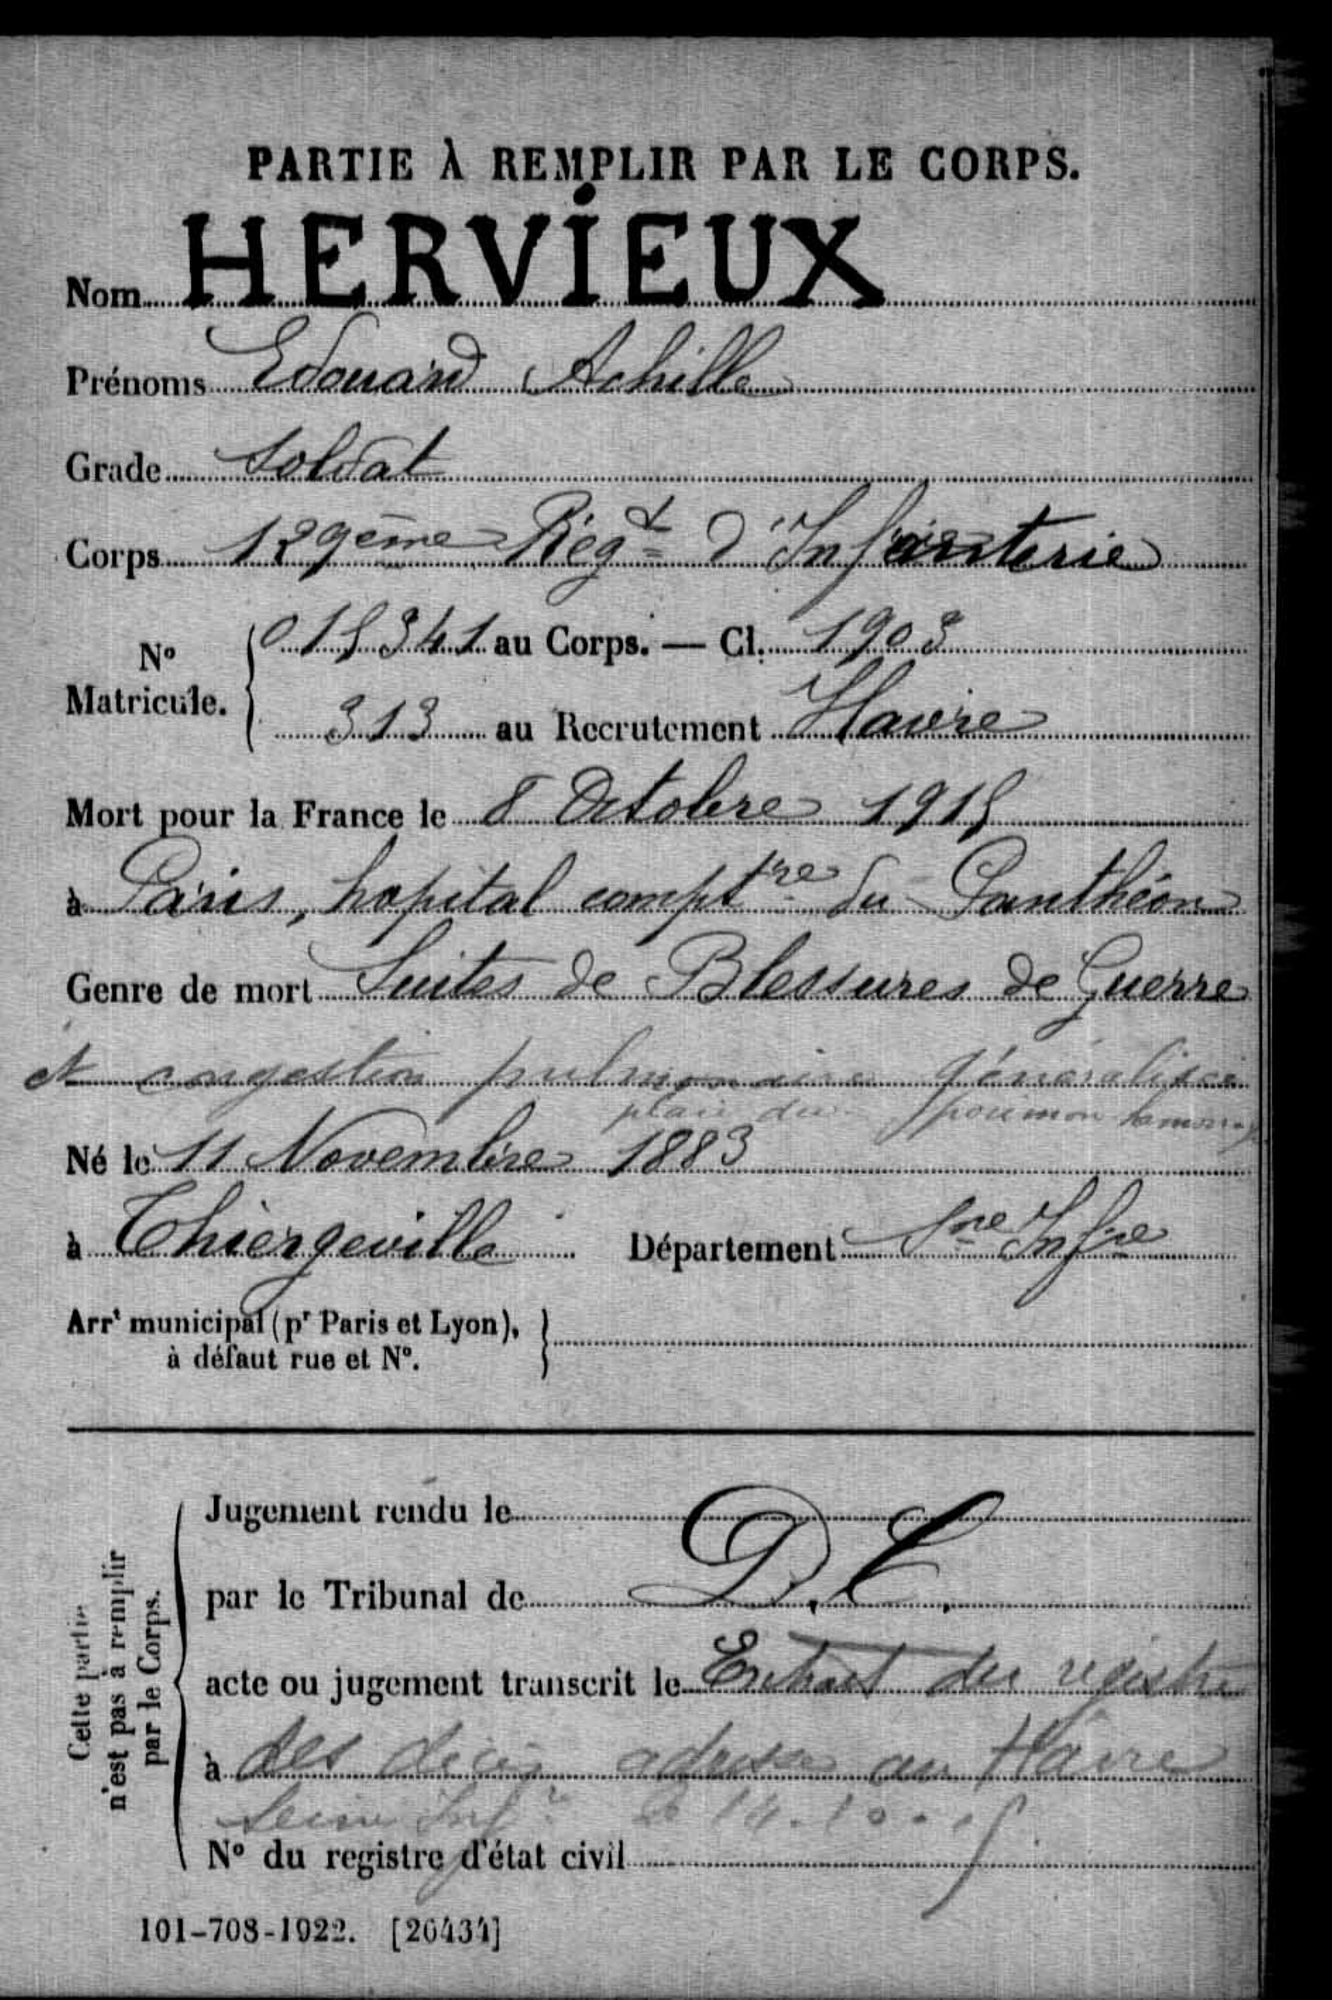 PARTIE À REMPLIR PAR LE CORPS.
Nom HERVIEUX
Prénoms Edouard Achille
Grade Soldat
Corps 129ème Régt d'Infanterie
No Matricule. 015341 au Corps. — Cl. 1903
313 au Recrutement Havre
Mort pour la France le 8 Octobre 1915
à Paris, hopital comptre du Panthéon
Genre de mort Suites de Blessures de Guerre
et congestion pulmonaire généralisée
plaie du poumon
Né le 11 Novembre 1883
à Thiergeville Département Sne Infre
Arrt municipal (pr Paris et Lyon),
à défaut rue et No.
Cette partie
n'est pas à remplir
par le Corps.
Jugement rendu le
par le Tribunal de D.C.
acte ou jugement transcrit le Extrait du registre
à des décès adressé au Havre
Seine Infre le 14.10.15
No du registre d'état civil
101-708-1922. [26434]